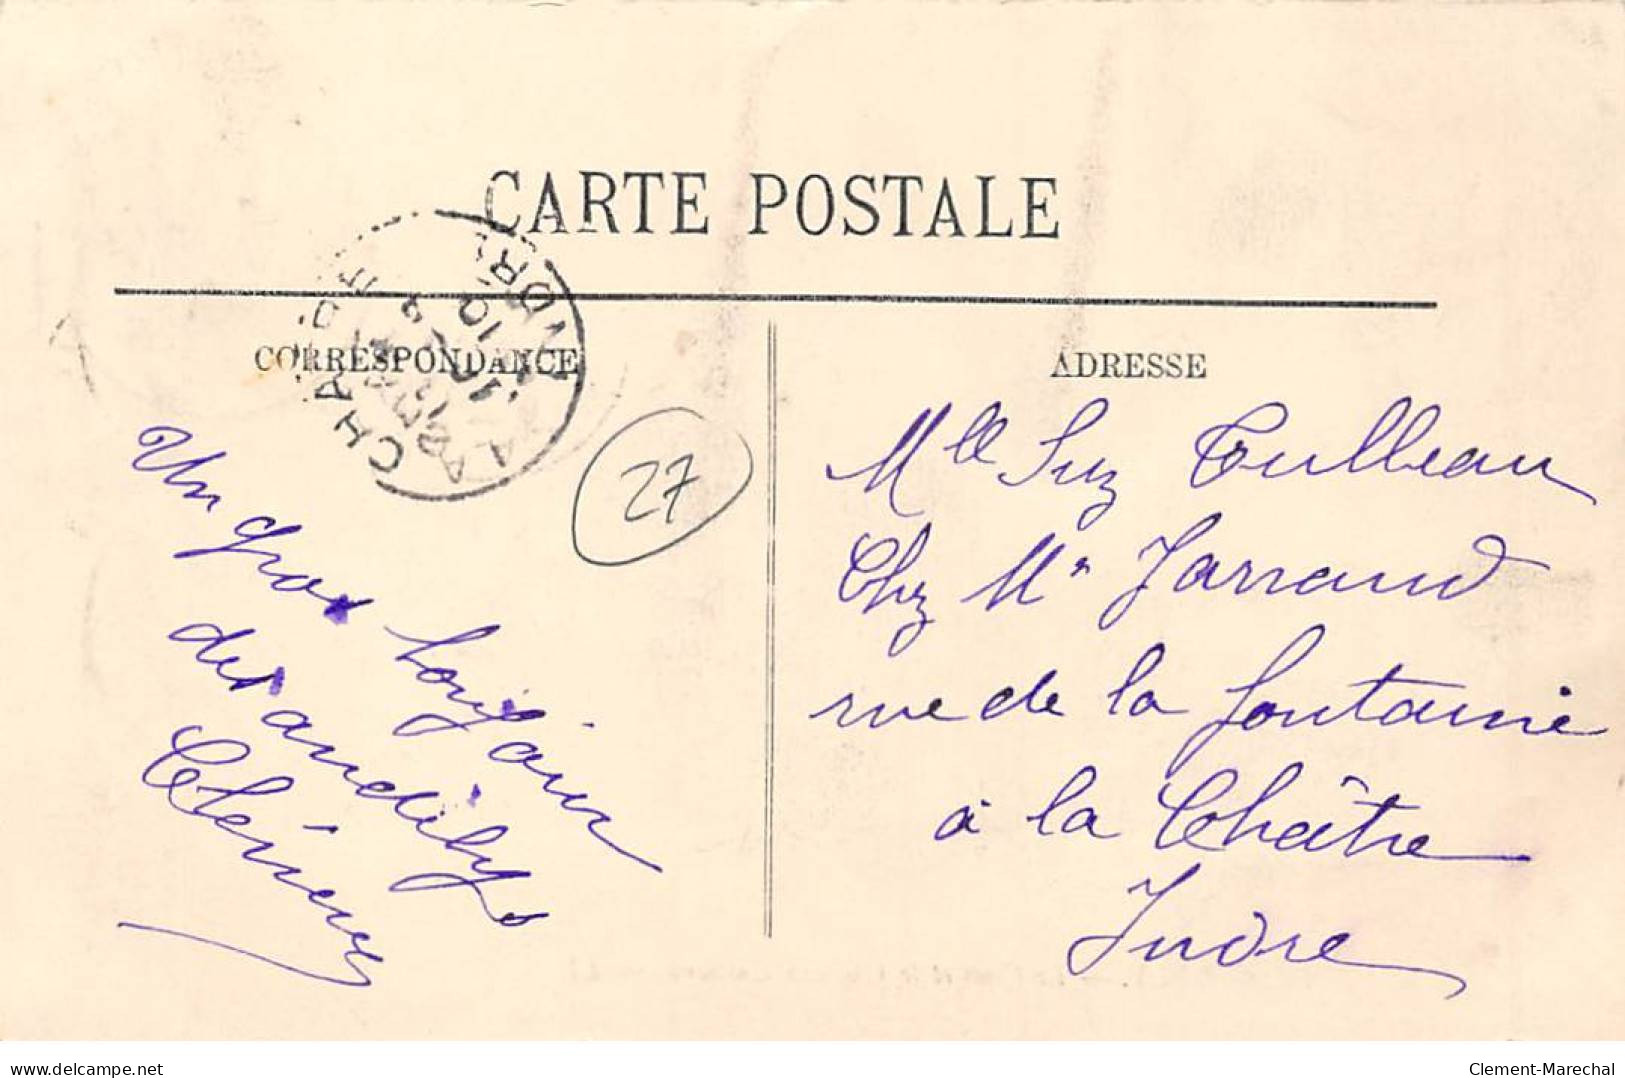 CARTE POSTALE
CORRESPONDANCE
ADRESSE
LA CHATRE
INDRE
27
Un gros bonjour
des andilys
Clémence
Mlle Suz Tulleau
Chez Mr Jarraud
rue de la fontaine
à la Châtre
Indre
www.delcampe.net
Clement-Marechal